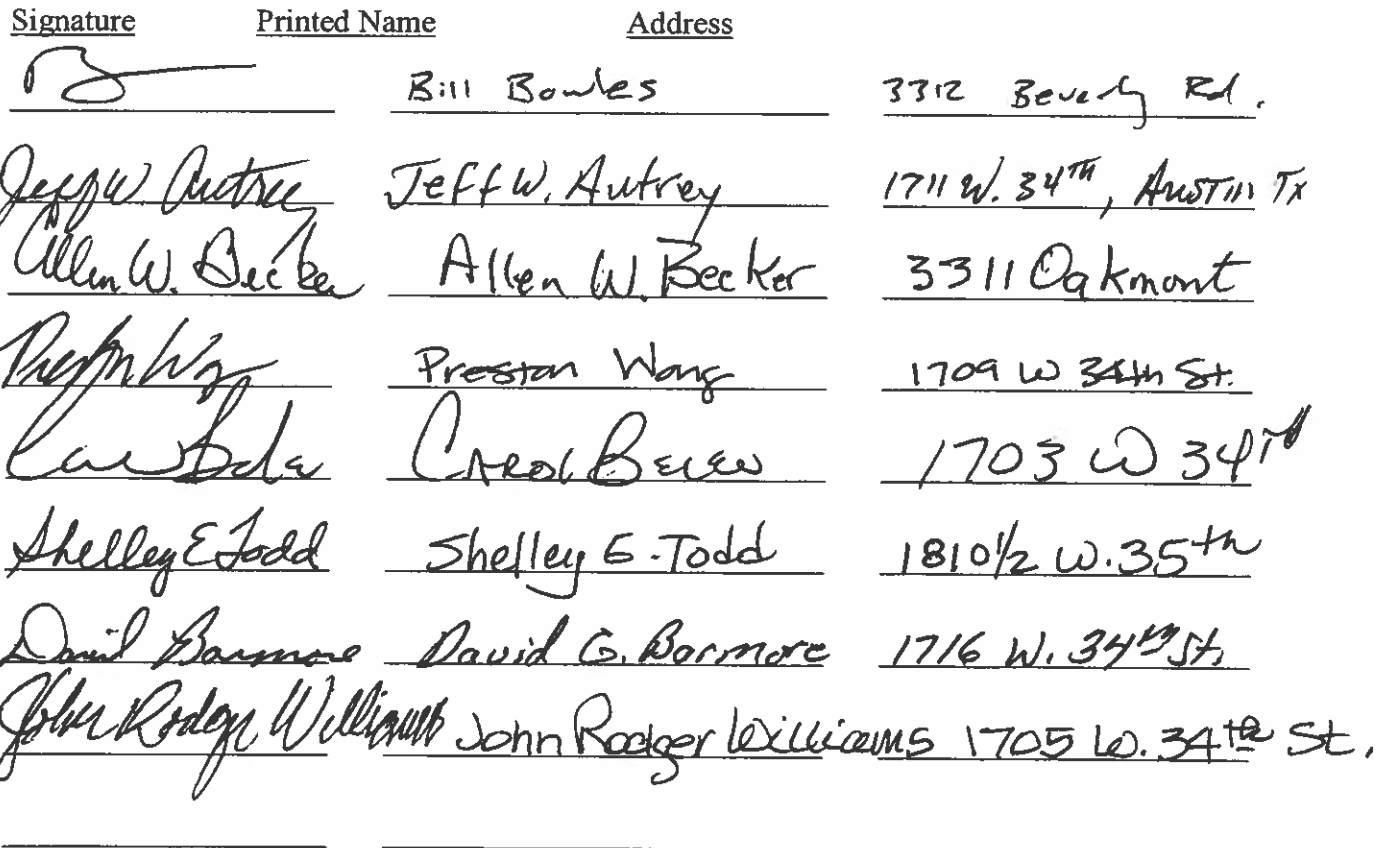 Signature Printed Name Address
Bill Bowles 3312 Beverly Rd.
Jeff W. Autrey Jeff W. Autrey 1711 W. 34th, Austin Tx
Allen W. Becker Allen W. Becker 3311 Oakmont
Preston Wong Preston Wong 1709 W 34th St.
Carol 1703 W 34th
Shelley E Todd Shelley E. Todd 1810 1/2 W. 35th
David Barmore David G. Barmore 1716 W. 34th St.
John Rodger Williams John Rodger Williams 1705 W. 34th St.